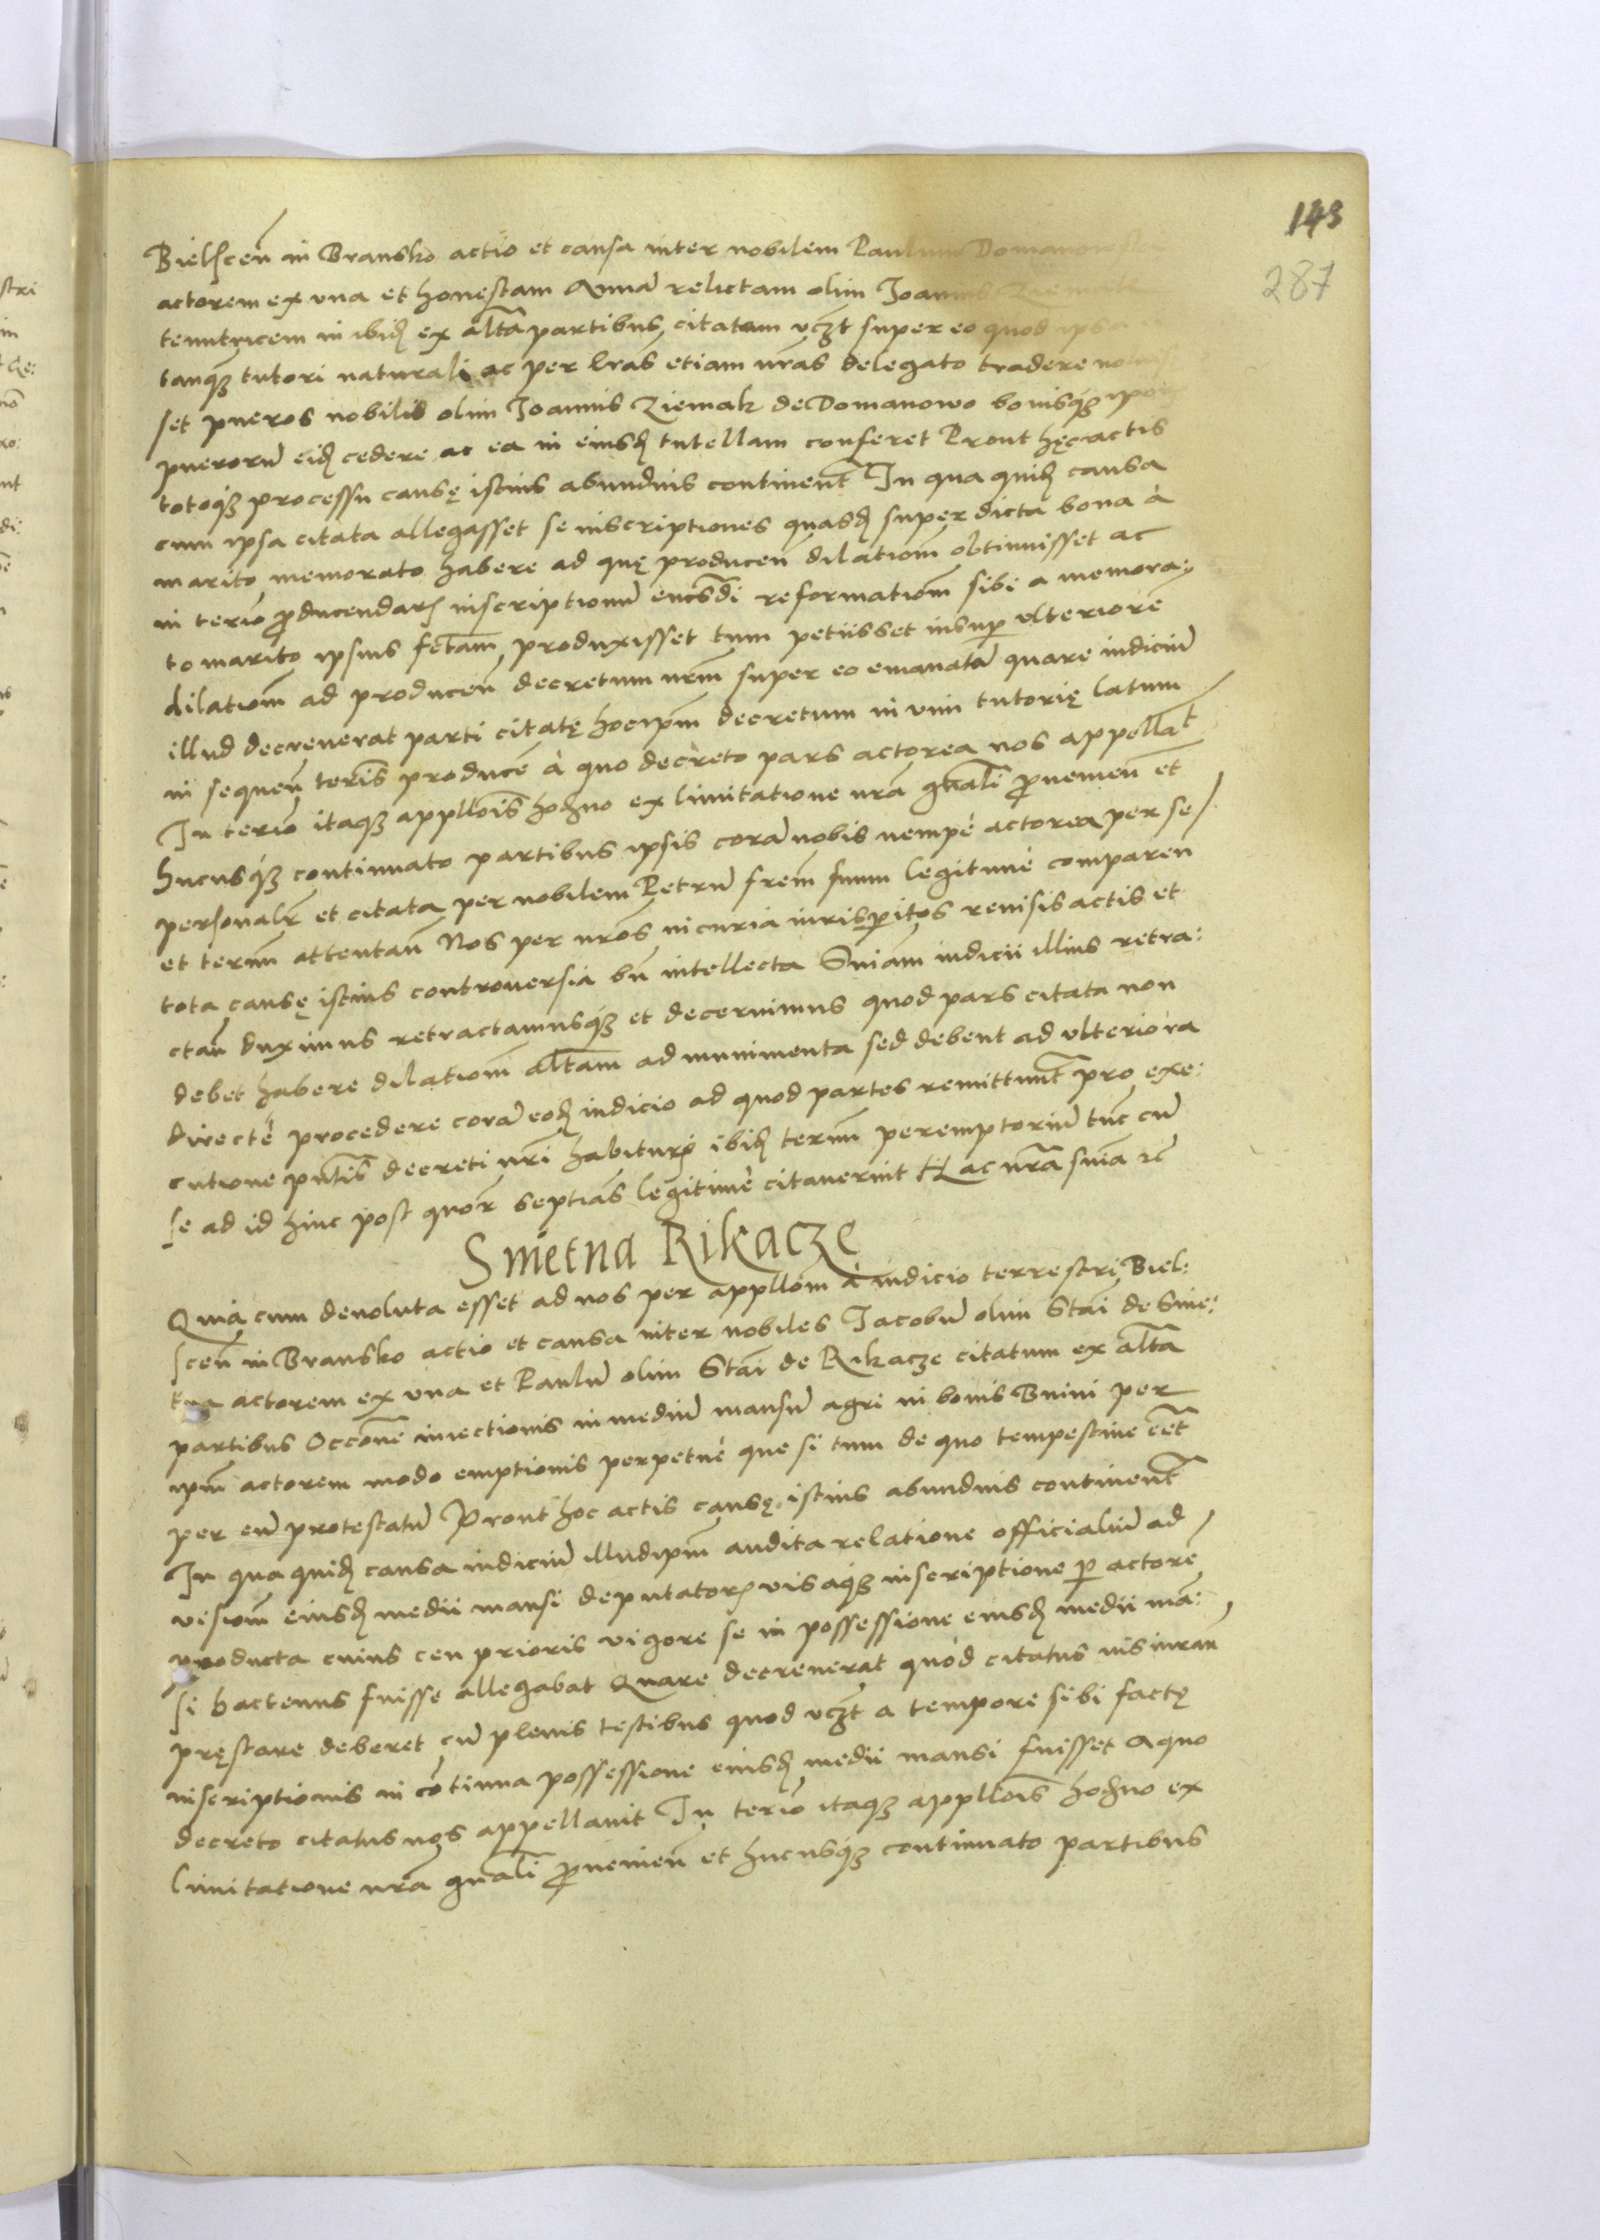 143
287
Bielscen̄ in Bransko actio et causa inter nobilem Paulum
actorem ex una et honestam Annā relictam olim Joannis
tenutricem in ibid ex altā partibus, citatam vczt super eo quod ipsa
tanq̃ tutori naturali ac per lr̃as etiam nr̃as delegato tradere
set pueros nobilis olim Joannis Ziemak de Domanowo bonisq̃
puerorū eid cedere ac ea in eiusd tutellam conferet Prout hęc actis
totoq̃ processu causę istius abundius continent̄ In qua quid causa
cum ipsa citata allegasset se inscriptiones quasd super dicta bona à
marito memorato habere ad quę producen̄ dilationm̄ obtinuisset ac
in terīo producendar inscriptionū reformationm̄ sibi a memora:
to marito ipsius fctam produxisset tum petiisset insup ulteriorē
dilationm̄ ad producen̄ decretum nr̄m super eo emanatā quare iudiciū
illud decreverat parti citatę hocipm̄ decretum in vim tutorię latum
in sequen̄ terīs producē à quo decreto pars actorea nos appellat
In terīo itaq̃ appllois hodno ex limitatione nr̄a gnali provenien̄ et
hucusq̃ continuato partibus ipsis corā nobis nempè actorea per se
personalr et citata per nobilem Petrū fr̄em suum legitimè comparen
et termī attentan̄ Nos per nr̄os in curia iurisperitos revisis actis et
tota causę istius controversia bn̄ intellecta Sn̄iam iudicii illius retra:
ctan̄ duximus retractamusq̃ et decernimus quod pars citata non
debet habere dilationm̄ altam ad munimenta sed debent ad ulteriora
directè procedere corā eod iudicio ad quod partes remittunt̄ pro exe:
cutione pn̄tis decreti nr̄i habitur ibid termī peremptoriū tūc cū
se ad id hinc post quor septias legitimè citaverint Hac nr̄a sn̄ia rc̄
Smetna Rikacze
Quia cum devoluta esset ad nos per appllom̄ à iudicio terrestri Biel:
scen̄ in Bransko actio et causa inter nobiles Jacobū olim Stai de Sme:
tna actorem ex una et Paulū olim Stai de Rikacze citatum ex altā
partibus Occōne iniectionis in mediū mansū agri in bonis Bnini per
ipm̄ actorem modo emptionis perpetuè que si tum de quo tempestive eēt
per eū protestatū Prout hoc actis causę istius abundius continent̄
In qua quid causa iudiciū illudipm̄ audita relatione officialiū ad
visionm̄ eiusd medii mansi deputator visaq̃ inscriptione p actorē
producta cuius ceu prioris vigore se in possessione eiusd medii mā:
si hactenus fuisse allegabat Quare decreverat quòd citatus iusiuran
pręstare deberet cū plenis testibus quod vczt a tempore sibi factę
inscriptionis in cōtinua possessione eiusd medii mansi fuisset A quo
decreto citatus nos appellavit In terīo itaq̃ appllois hodno ex
limitatione nr̄a gnali provenien̄ et hucusq̃ continuato partibus